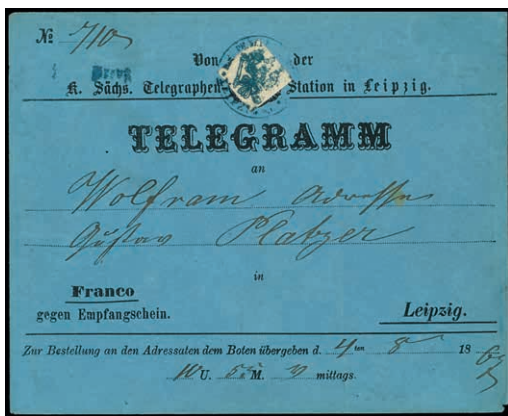 № 710
Von der
K. Sächs. Telegraphen Station in Leipzig.
TELEGRAMM
an
Wolfram Adresse
Gustav Platzer
in
Franco
gegen Empfangschein.
Leipzig.
Zur Bestellung an den Adressaten dem Boten übergeben d. 4ten 8 18
10 U. 55 M. mittags.